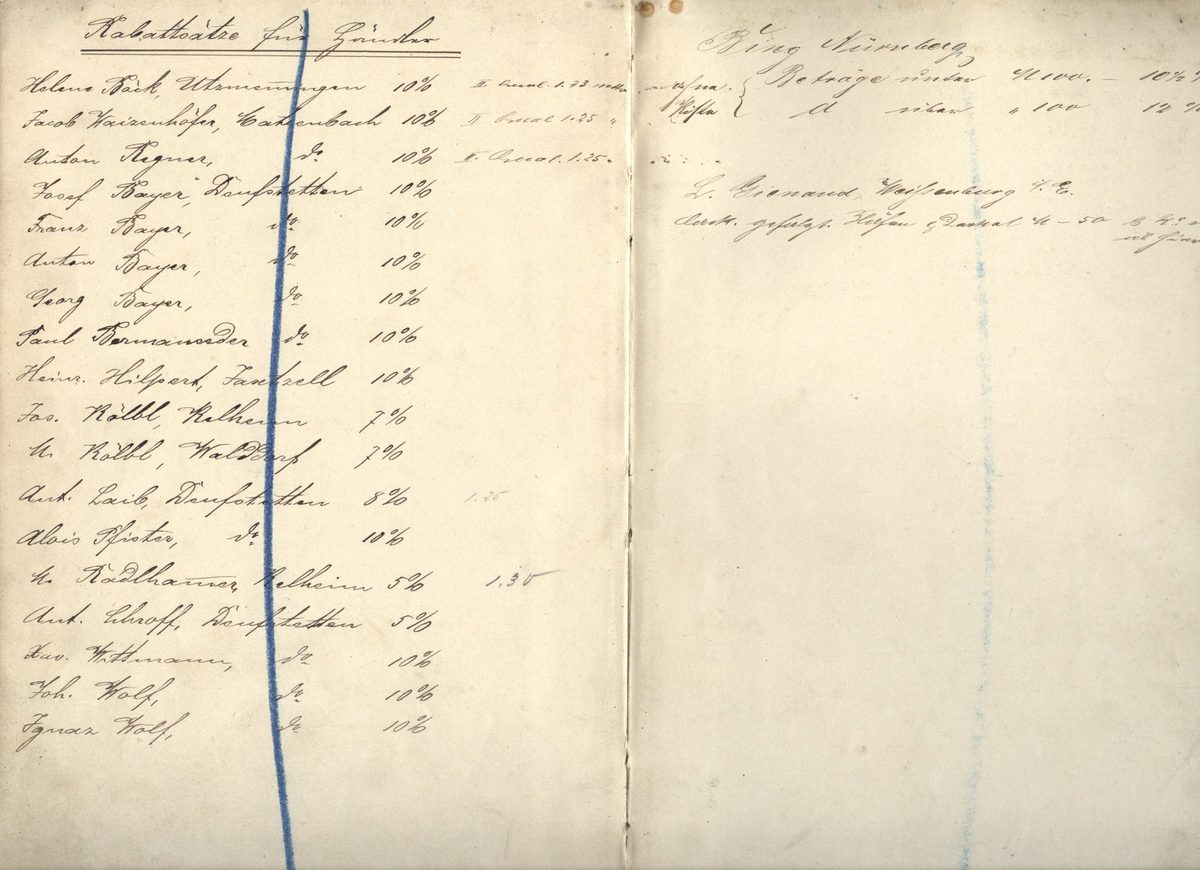 Rabattsätze für Händler
Helene Böck, Utzmemmingen 10% II 1.23
Jacob Waizenhöfer, Matzenbach 10% II 1.25 "
Anton Regner, do 10% II. 1.25.
Josef Bayer, Deufstetten 10%
Franz Bayer, do 10%
Anton Bayer, do 10%
Georg Bayer, do 10%
Paul do 10%
Heinr. Hilpert, Jaxtzell 10%
Jos. Kölbl, Kelheim 7%
M. Kölbl, Walddorf 7%
Ant. Laib, Deufstetten 8% 1.25
Alois Pfister, do 10%
M. Radlhamer, Kelheim 5% 1.30
Ant. Schroff, Deufstetten 5%
Xav. Wittmann, do 10%
Joh. Wolf, do 10%
Ignaz Wolf, do 10%
Bing Nürnberg
ohne Beträge unter M 100. – 10%
Kiste do über " 100 12%
L. Gienand, Weißenburg i/E.
M – 50